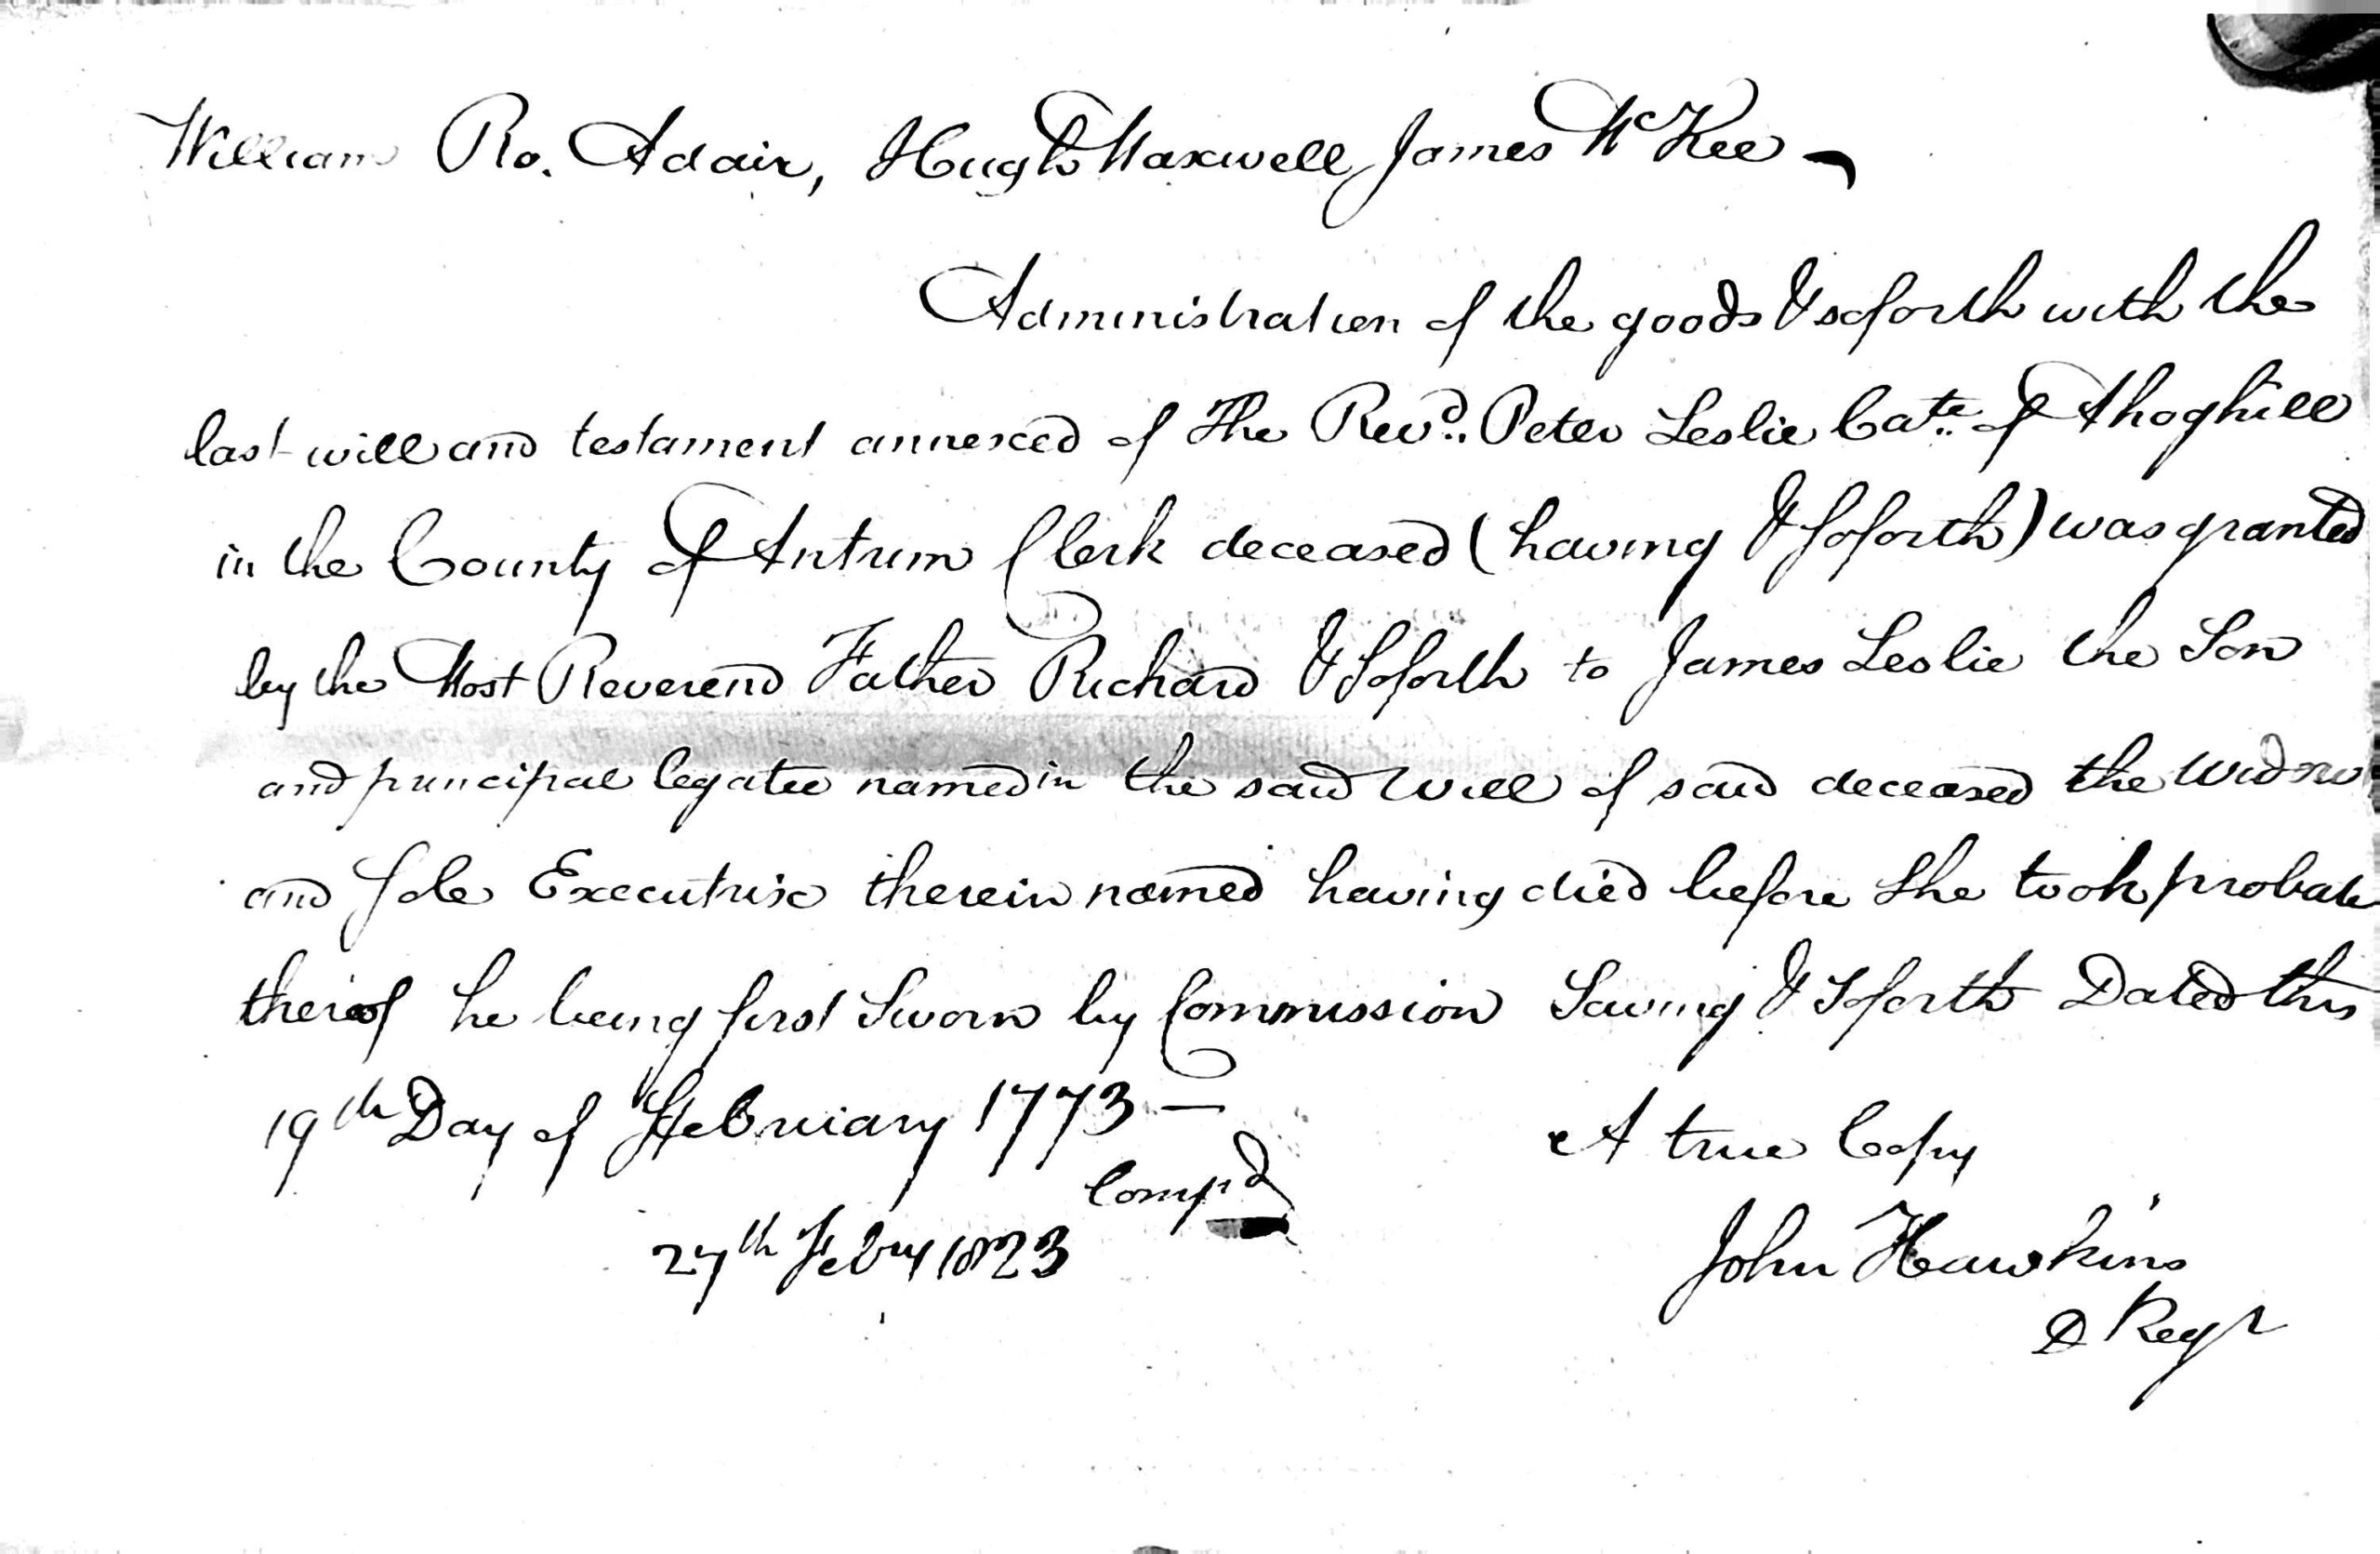 William Ro. Adair, Hugh Maxwell James McKee
Administration of the goods & soforth with the
last will and testament annexed of The Revd. Peter Leslie late of Ahoghill
in the County of Antrim Clerk deceased (having & soforth) was granted
by the Most Reverend Father Richard & Soforth to James Leslie the Son
and principal legatee named in the said Will of said deceased the Widow
and Sole Executrix therein named having died before she took probate
thereof he being first Sworn by Commission Saving & Soforth Dated this
19th Day of February 1773 —
A true Copy
Compd
27th Feby 1823
John Hawkins
D Regr